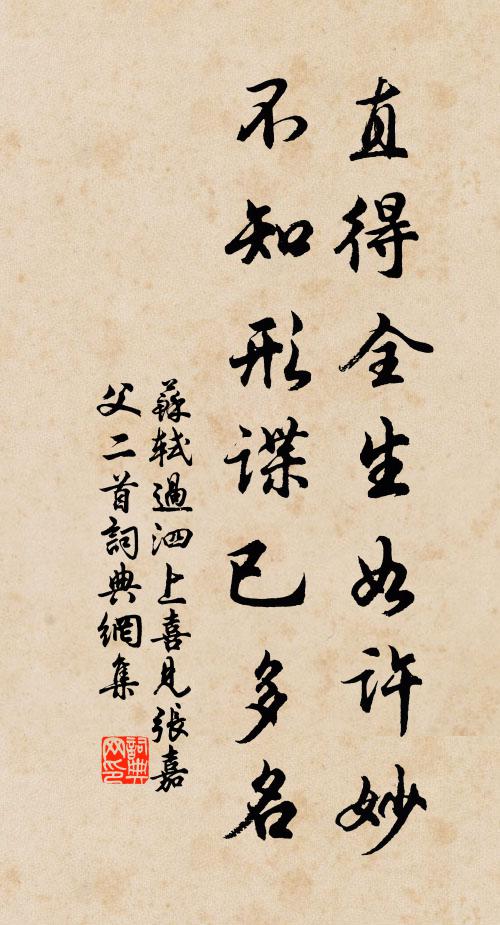 直得全生如許妙
不知形諜已多名
蘇軾過泗上喜見張嘉
父二首詞典網集
詞典
网印